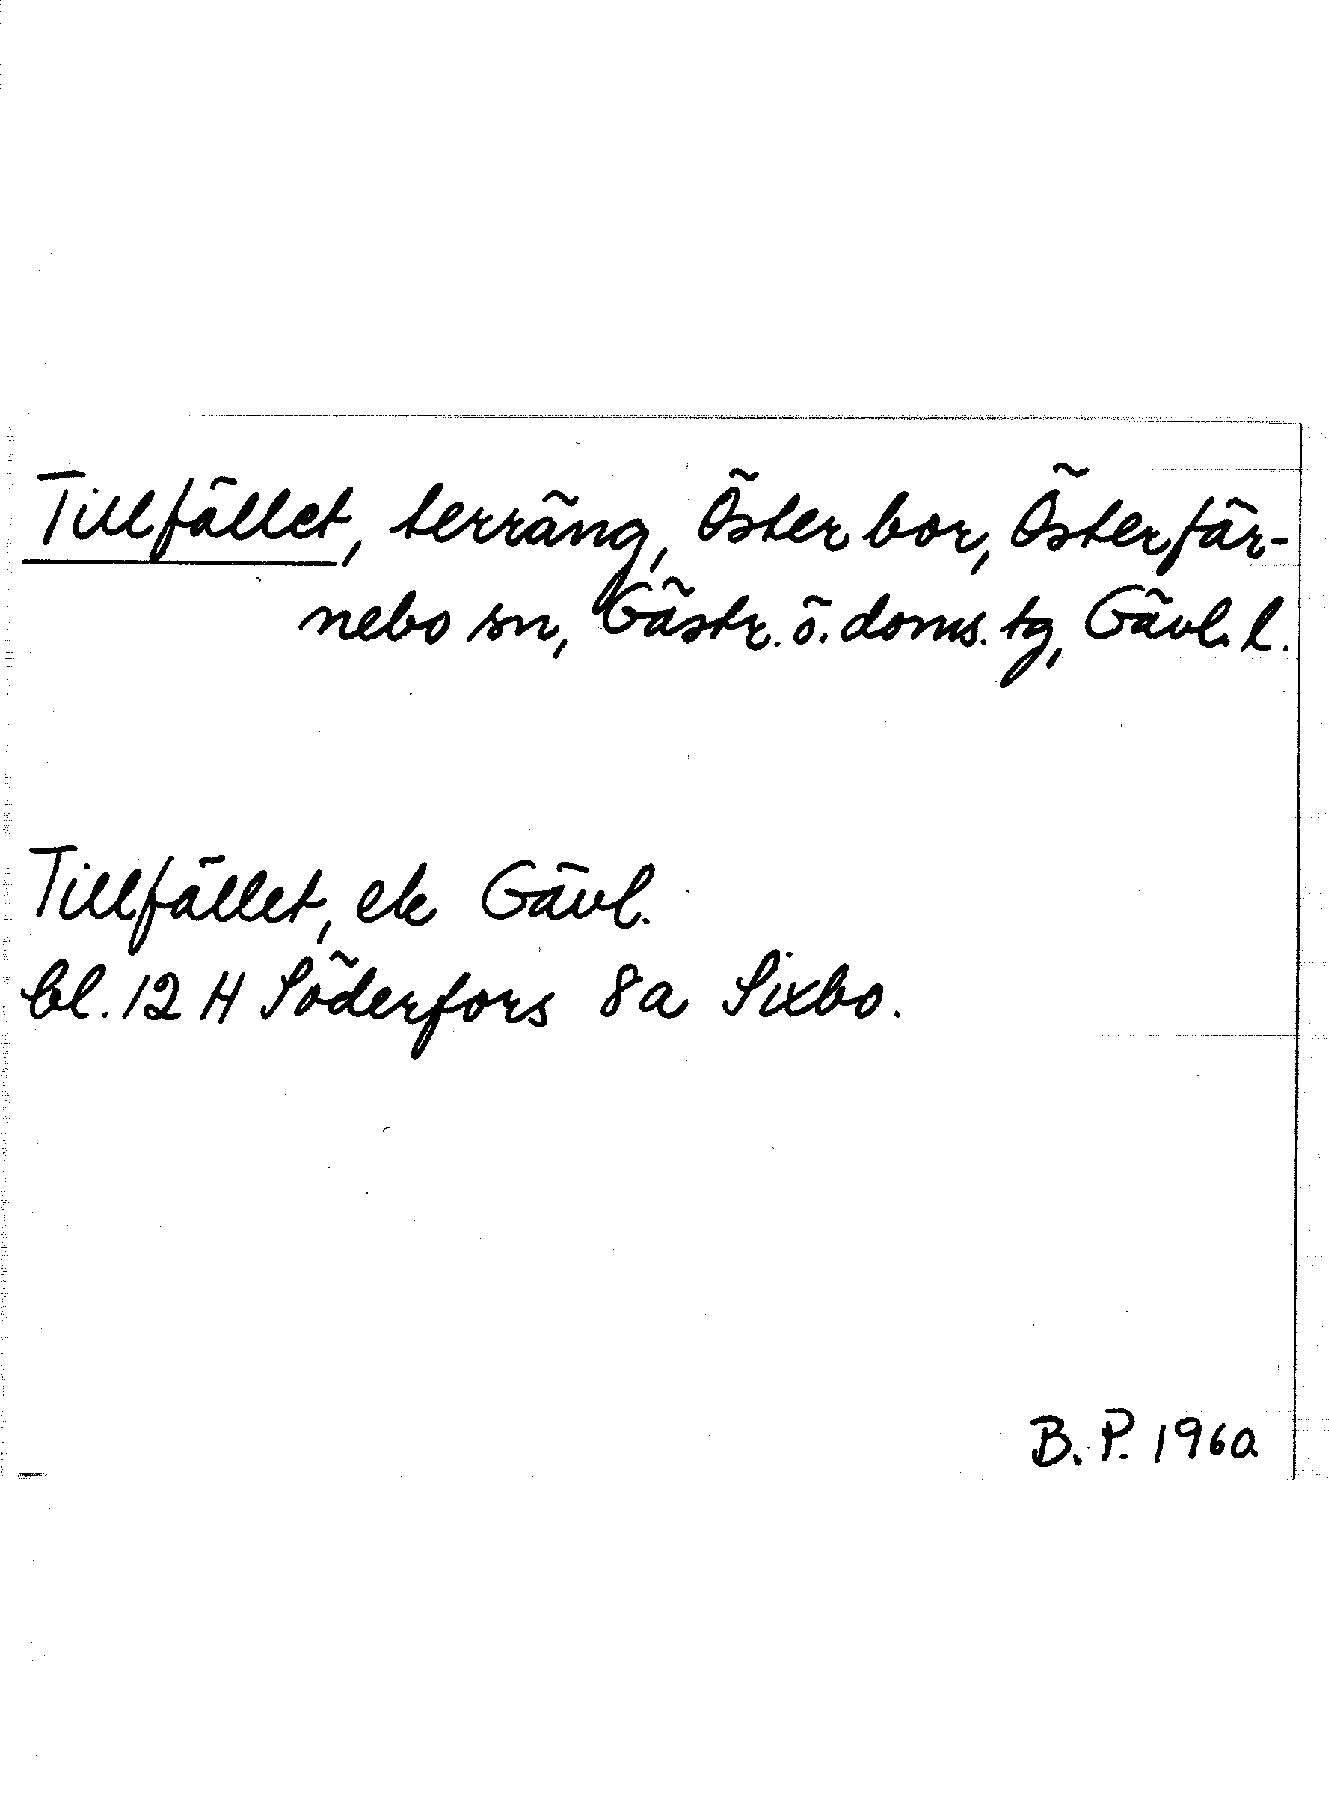 Tillfället, terräng, Österbor, Österfär-
nebo sn, Gästr. ö. doms. tg, Gävl. l.
Tillfället, ek Gävl.
bl. 12 H Söderfors 8a Sixbo.
B. P. 1960